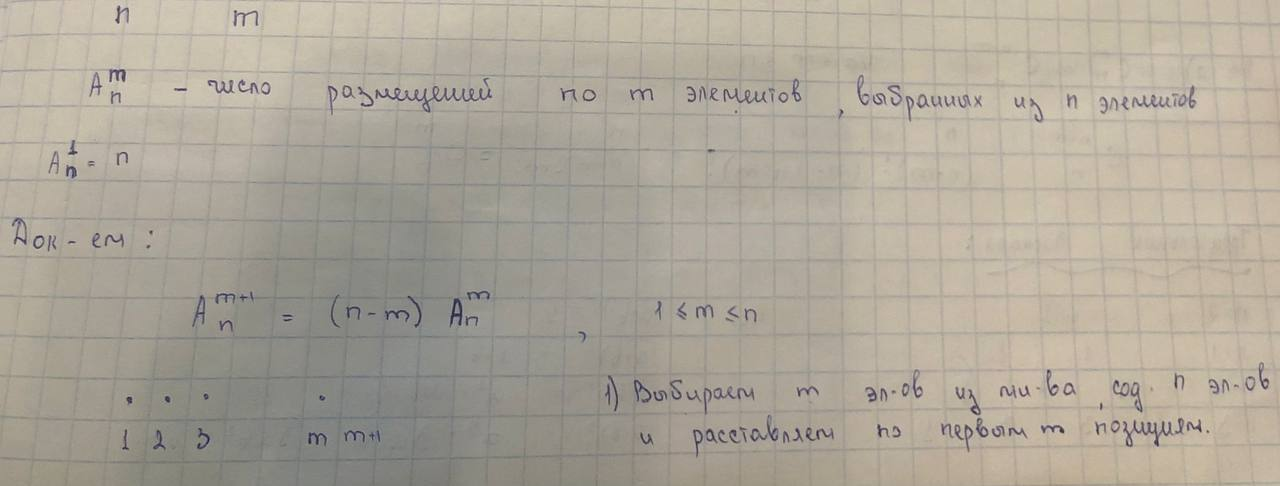 n m
A_n^m – число размещений по m элементов, выбранных из n элементов
A_n^1 = n
Док-ем:
A_n^{m+1} = (n-m) A_n^m , 1 ≤ m ≤ n
. . . . 1) Выбираем m эл-ов из мн-ва, сод. n эл-ов
1 2 3 m m+1 и расставляем по первым m позициям.